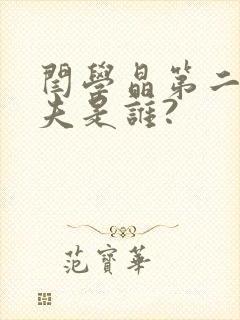 閆學晶第二
夫是誰?
范寶華